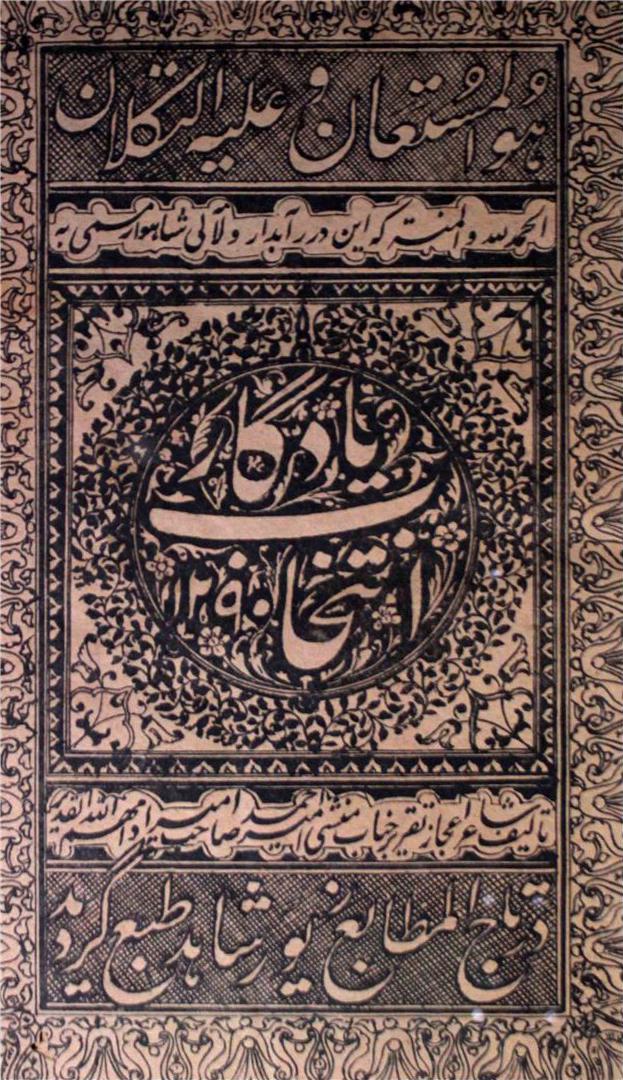 هو المستعان و علیه التکلان
الحمد لله والمنة که این درر آبدار و لآلی شاهوار مسمی به
یادگار
انتخاب
۱۲۹۰
تالیف شاعر اعجاز تقریر جناب منشی امیر احمد صاحب امیر ادامهم الله القدیر
در تاج المطابع زیور شاهد طبع گردید